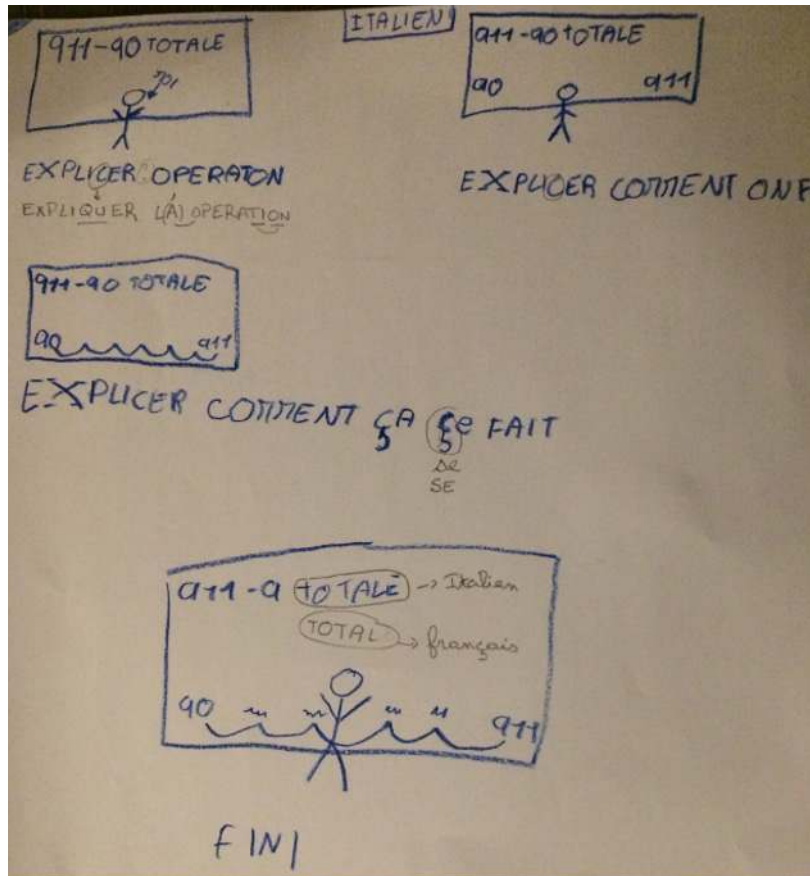 911-90 TOTALE
ITALIEN
911-90 TOTALE
90 911
EXPLICER OPERATON
EXPLIQUER L(A) OPERATION
EXPLICER COMMENT ONF
911-90 TOTALE
90 911
EXPLICER COMMENT ÇA Çe FAIT
se
SE
911-9 TOTALE → Italien
TOTAL → français
90 911
FINI